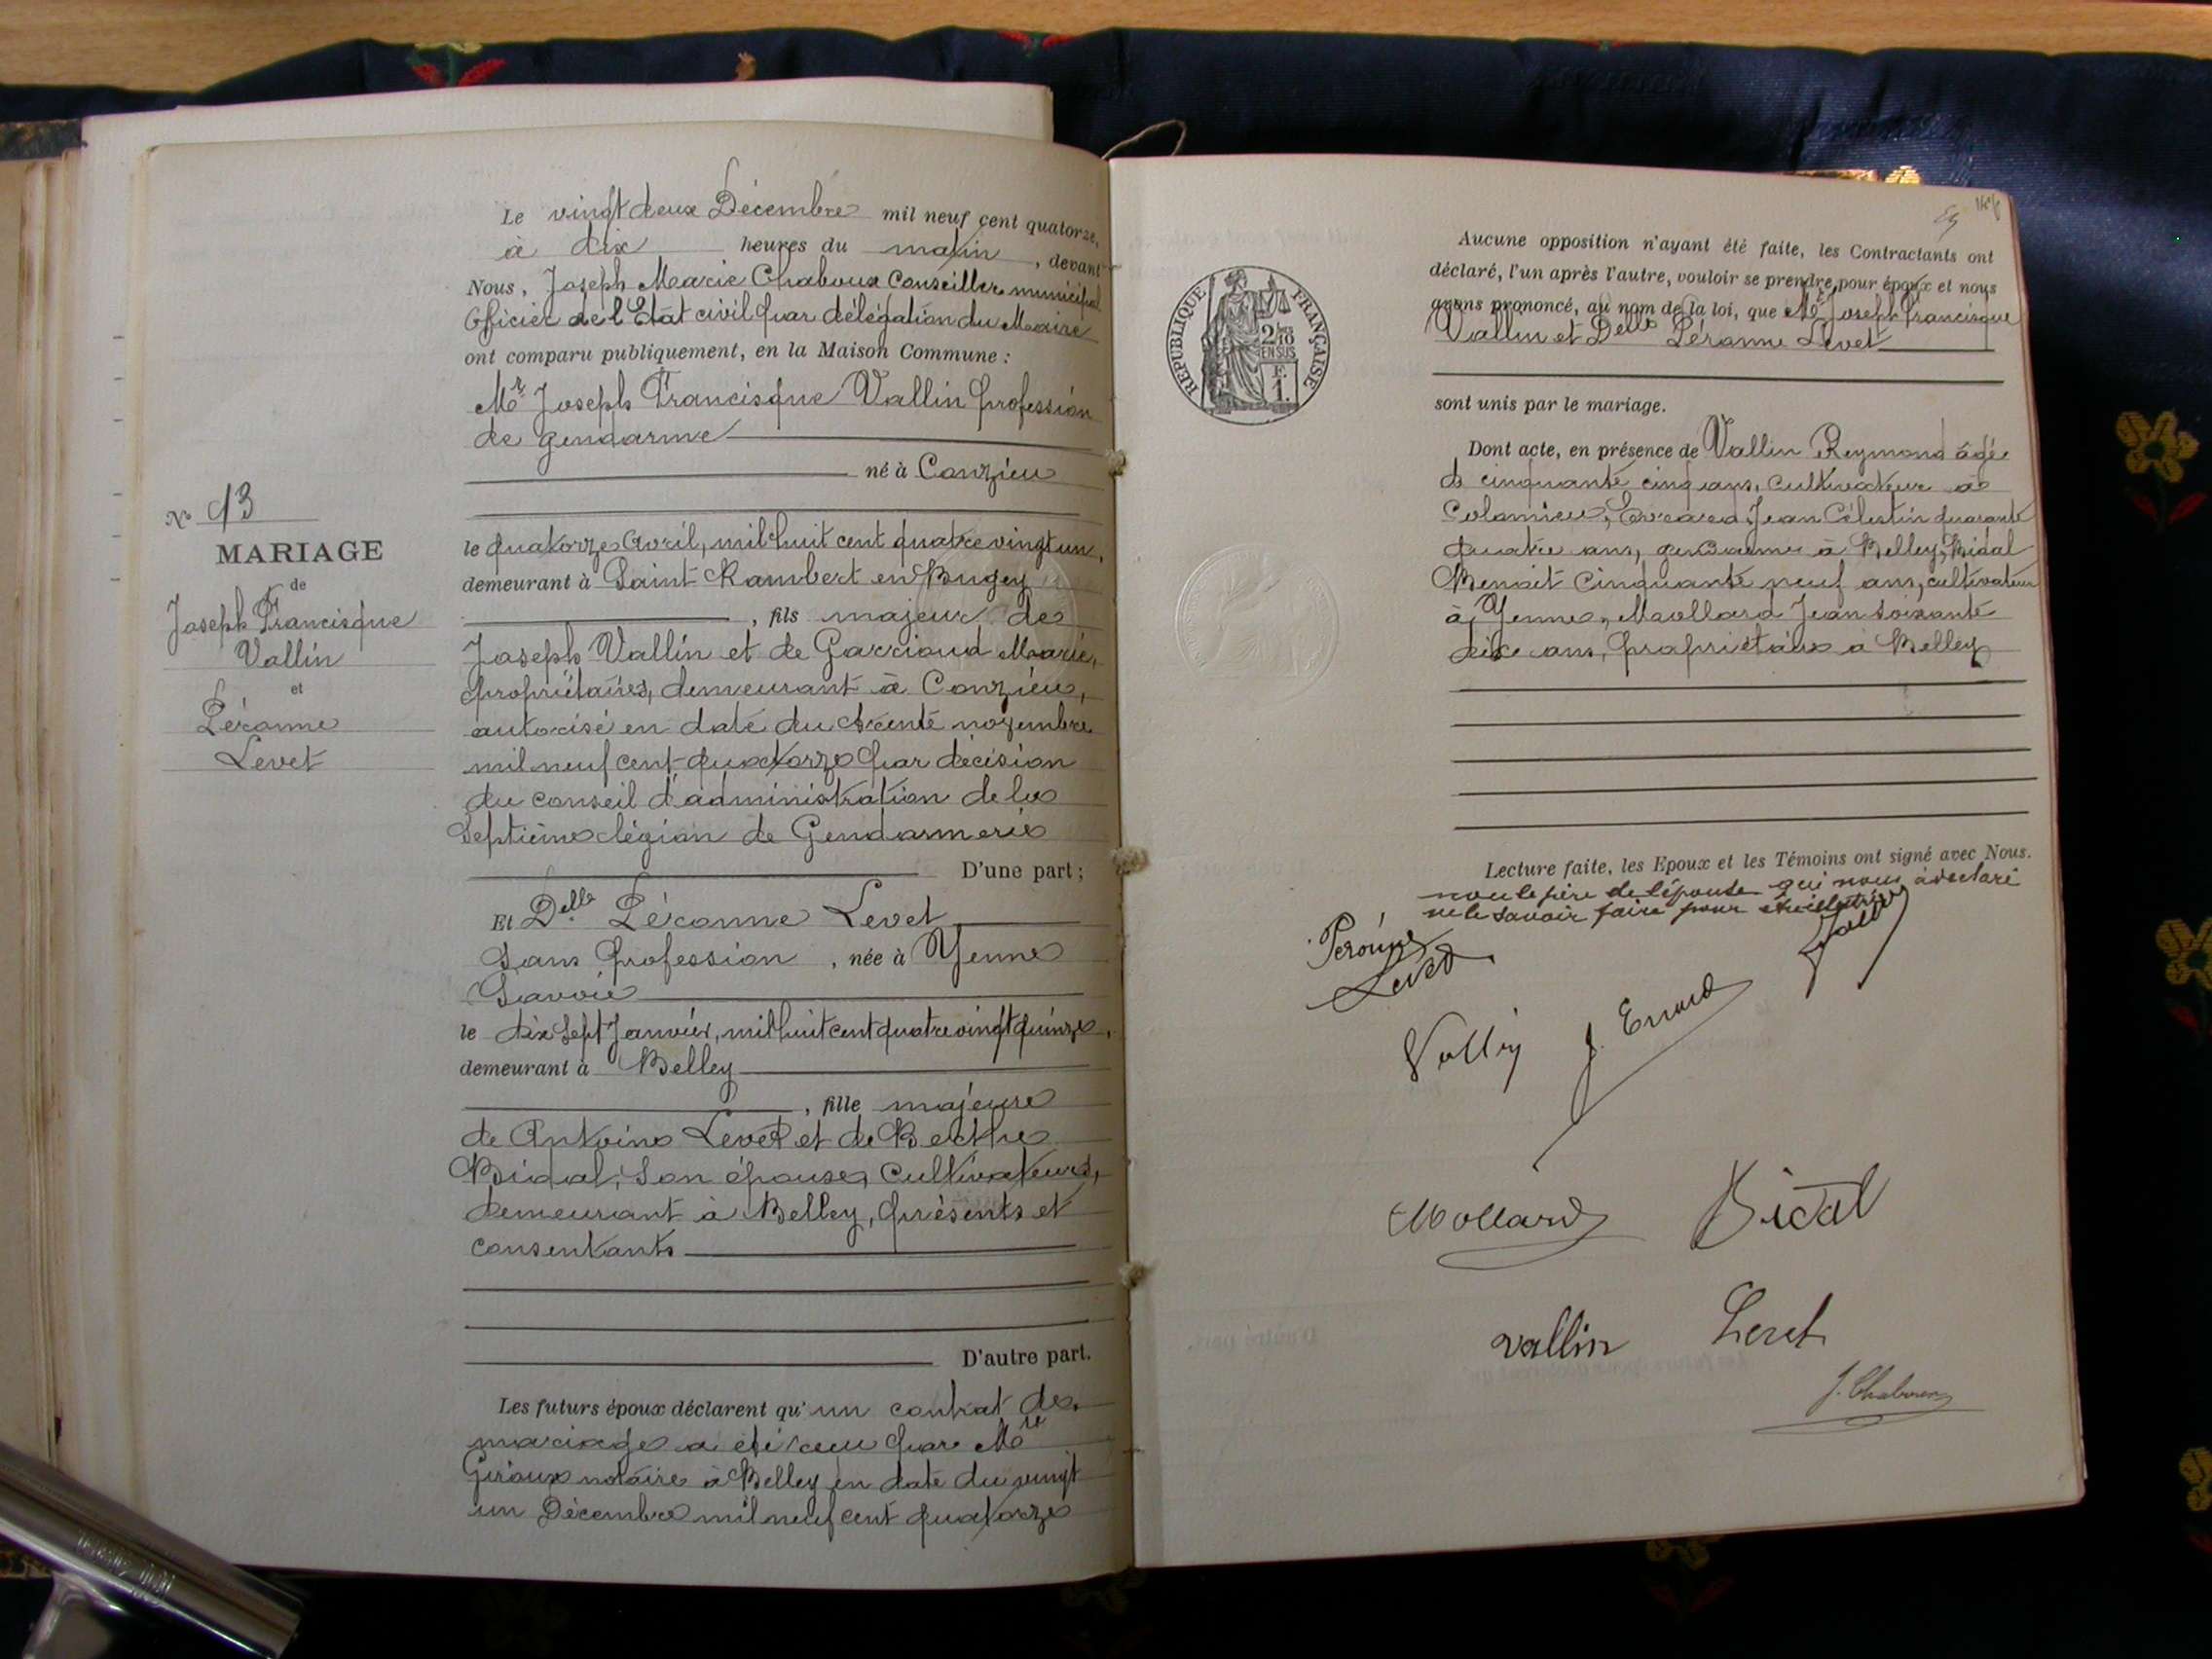 Le vingt deux Décembre mil neuf cent quatorze,
à dix heures du matin, devant
Nous, Joseph Marie Chaboux Conseiller municipal
Officier de l'Etat civil par délégation du Maire
ont comparu publiquement, en la Maison Commune :
Mr Joseph Francisque Vallin profession
de gendarme
né à Conzieu
le quatorze Avril, mil huit cent quatre vingt un,
demeurant à Saint Rambert en Bugey
, fils majeur de
Joseph Vallin et de Garriaud Marie,
propriétaires, demeurant à Conzieu,
autorisé en date du trente novembre
mil neuf cent quatorze par décision
du conseil d'administration de la
Septième légion de Gendarmerie
D'une part ;
Et Delle Péronne Levet
Sans profession, née à Yenne
Savoie
le dix Sept Janvier, mil huit cent quatre vingt quinze,
demeurant à Belley
, fille majeure
de Antoine Levet et de Berthe
Bidal, son épouse, cultivateurs,
demeurant à Belley, présents et
consentants
D'autre part.
Les futurs époux déclarent qu'un contrat de
mariage a été reçu par Me
notaire à Belley en date du vingt
un Décembre mil neuf cent quatorze
No 43
MARIAGE
de
Joseph Francisque
Vallin
et
Péronne
Levet
REPUBLIQUE FRANÇAISE
2/10
EN SUS
F.
1.
Aucune opposition n'ayant été faite, les Contractants ont
déclaré, l'un après l'autre, vouloir se prendre pour époux et nous
avons prononcé, au nom de la loi, que Mr Joseph Francisque
Vallin et Delle Péronne Levet
sont unis par le mariage.
Dont acte, en présence de Vallin Reymond âgé
de cinquante cinq ans, cultivateur à
Colomieu, Evrard Jean Célestin quarante
quatre ans, gendarme à Belley, Bidal
Benoit Cinquante neuf ans, cultivateur
à Yenne, Mollard Jean soixante
dix ans, propriétaire à Belley
Lecture faite, les Epoux et les Témoins ont signé avec Nous.
non le père de l'épouse qui nous a déclaré
ne le savoir faire pour être illettré
Peronne
Levet
Vallin
J. Evrard
Mollard
Bidal
vallin
Levet
J. Chaboux